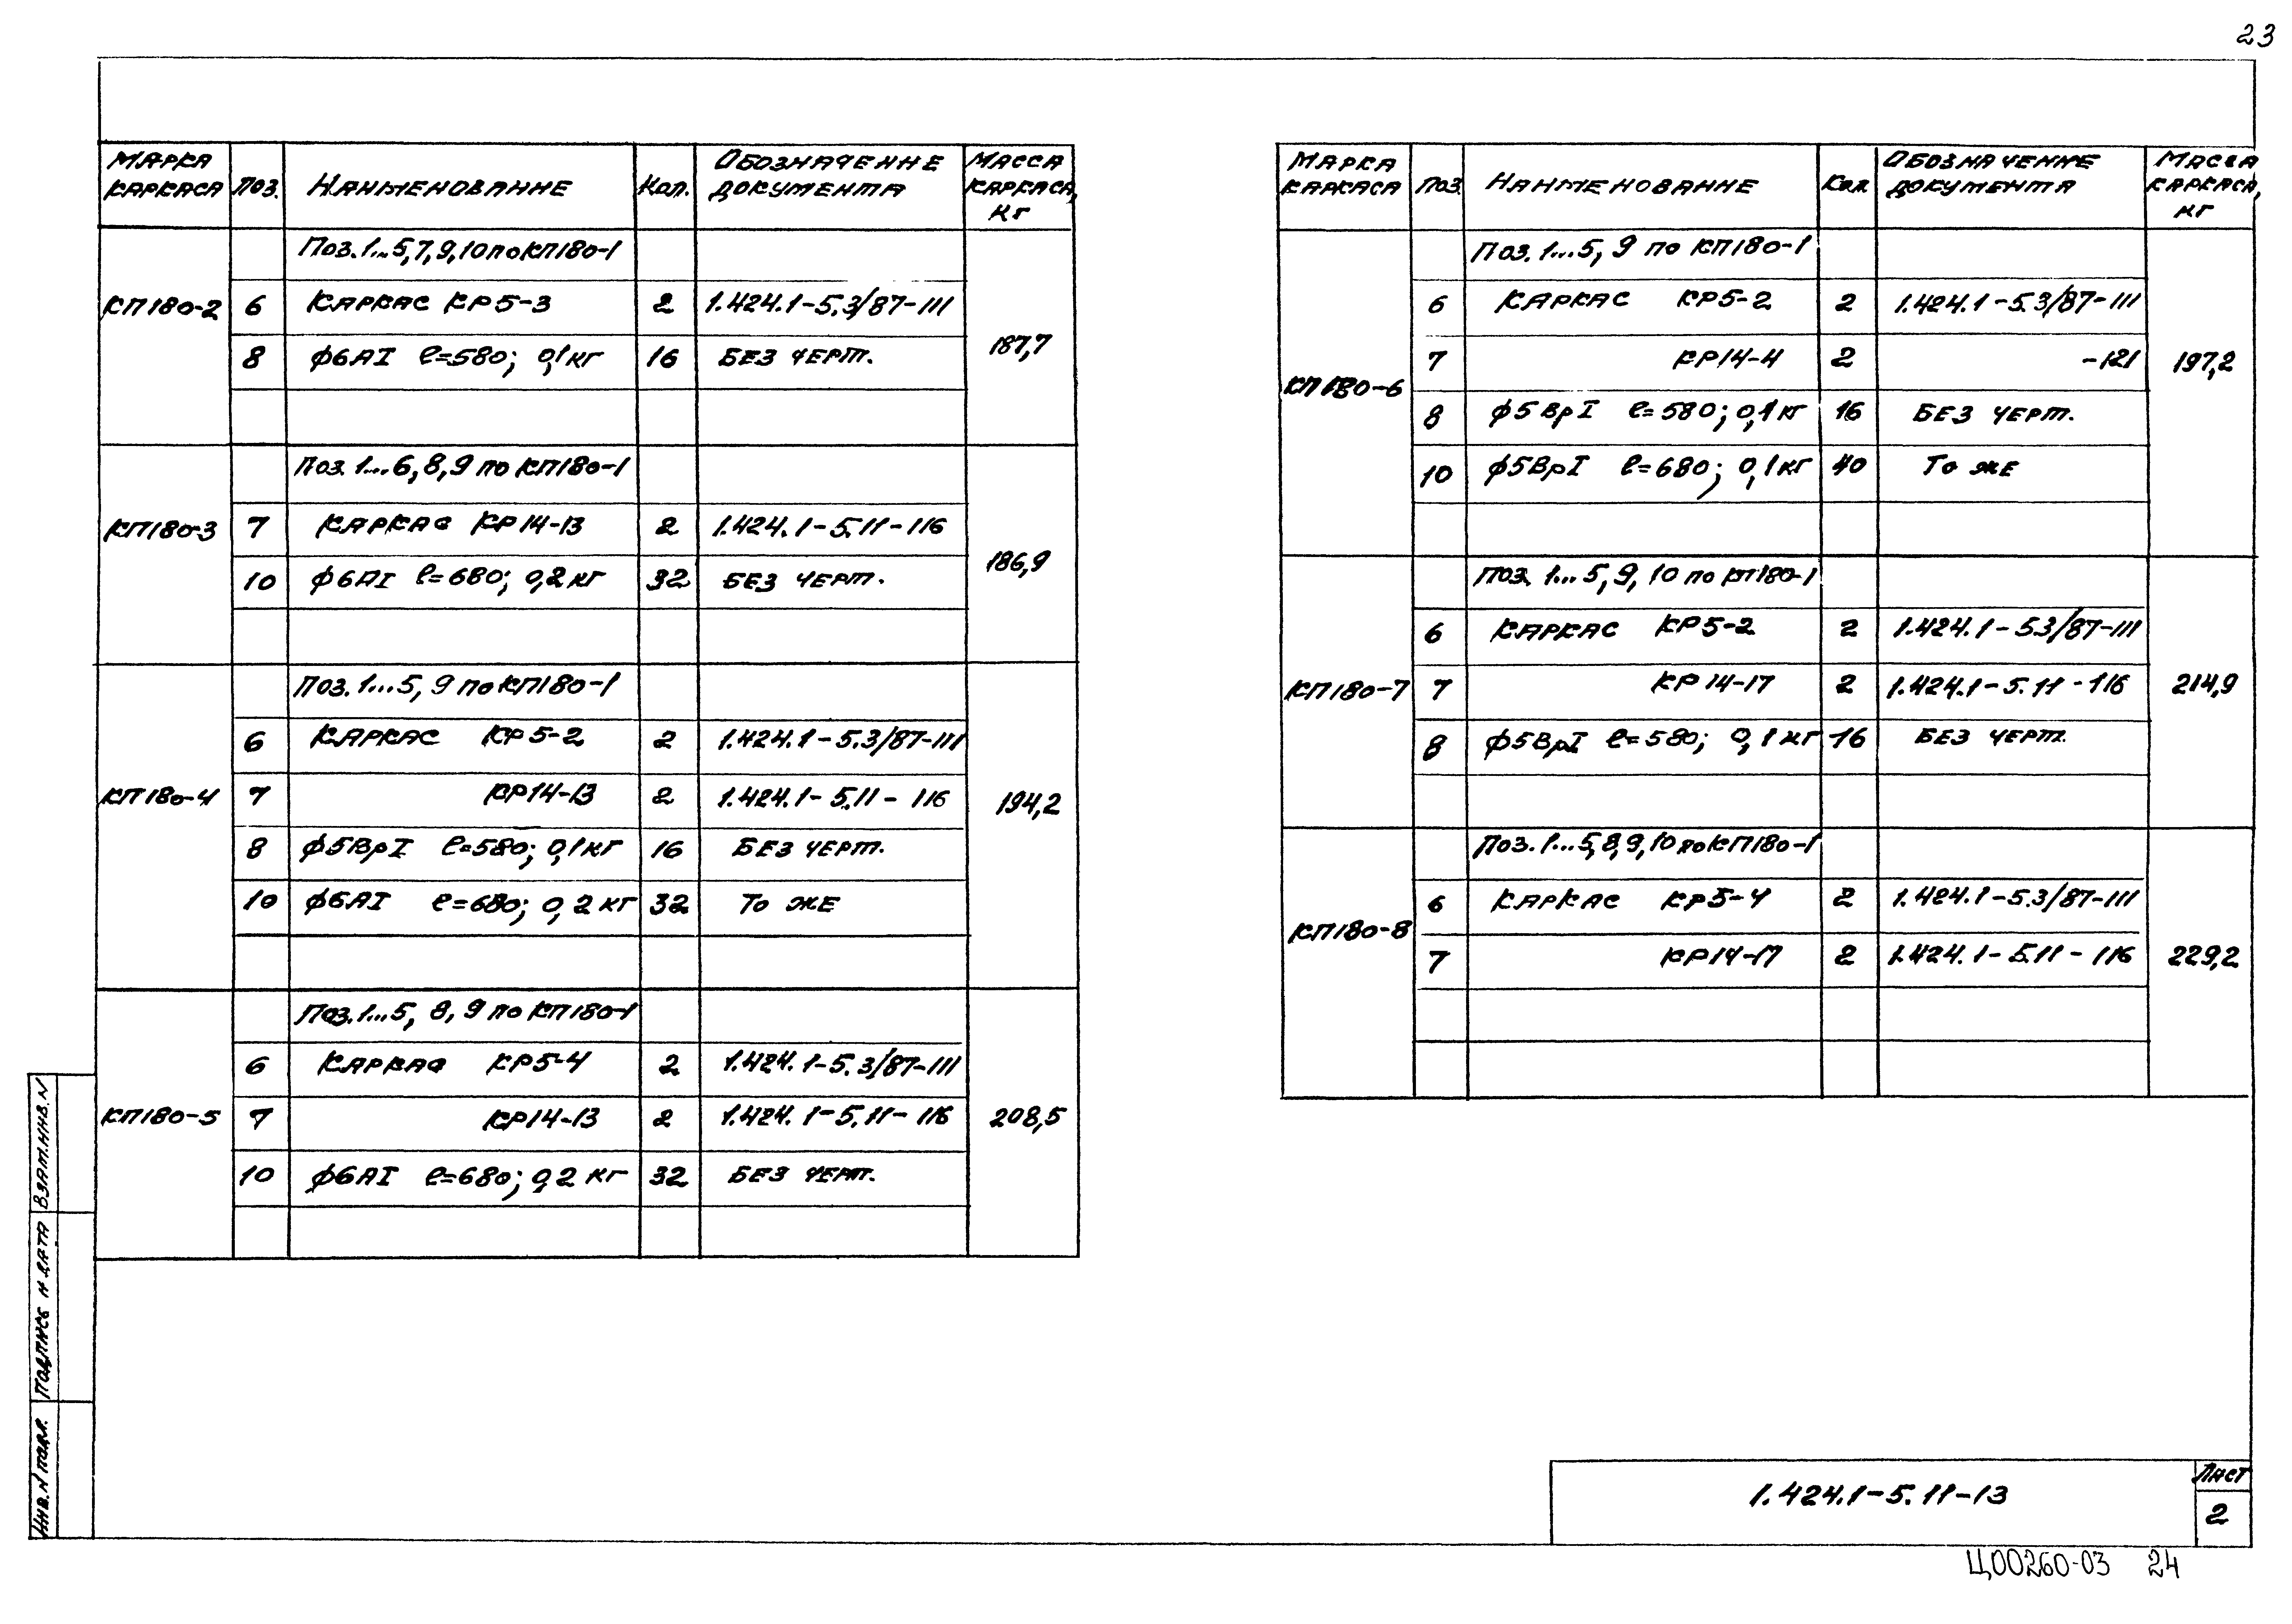 23
Марка каркаса | Поз. | Наименование | Кол. | Обозначение документа | Масса каркаса, кг
Поз. 1...5,7,9,10 по КП180-1
КП180-2 | 6 | Каркас КР5-3 | 2 | 1.424.1-5.3/87-111 | 187,7
8 | ф6АI ℓ=580; 0,1 кг | 16 | Без черт.
Поз. 1...6,8,9 по КП180-1
КП180-3 | 7 | Каркас КР14-13 | 2 | 1.424.1-5.11-116 | 186,9
10 | ф6АI ℓ=680; 0,2 кг | 32 | Без черт.
Поз. 1...5, 9 по КП180-1
6 | Каркас КР5-2 | 2 | 1.424.1-5.3/87-111
КП180-4 | 7 | КР14-13 | 2 | 1.424.1-5.11-116 | 194,2
8 | ф5ВрI ℓ=580; 0,1 кг | 16 | Без черт.
10 | ф6АI ℓ=680; 0,2 кг | 32 | То же
Поз. 1...5, 8, 9 по КП180-1
6 | Каркас КР5-4 | 2 | 1.424.1-5.3/87-111
КП180-5 | 7 | КР14-13 | 2 | 1.424.1-5.11-116 | 208,5
10 | ф6АI ℓ=680; 0,2 кг | 32 | Без черт.
Марка каркаса | Поз. | Наименование | Кол. | Обозначение документа | Масса каркаса, кг
Поз. 1...5, 9 по КП180-1
6 | Каркас КР5-2 | 2 | 1.424.1-5.3/87-111
КП180-6 | 7 | КР14-4 | 2 | -121 | 197,2
8 | ф5ВрI ℓ=580; 0,1 кг | 16 | Без черт.
10 | ф5ВрI ℓ=680; 0,1 кг | 40 | То же
Поз. 1...5, 9, 10 по КП180-1
6 | Каркас КР5-2 | 2 | 1.424.1-5.3/87-111
КП180-7 | 7 | КР14-17 | 2 | 1.424.1-5.11-116 | 214,9
8 | ф5ВрI ℓ=580; 0,1 кг | 16 | Без черт.
Поз. 1...5,8,9,10 по КП180-1
6 | Каркас КР5-4 | 2 | 1.424.1-5.3/87-111
КП180-8 | 7 | КР14-17 | 2 | 1.424.1-5.11-116 | 229,2
Взам. инв. N
Подпись и дата
Инв. N подл.
1.424.1-5.11-13
Лист
2
Ц00260-03 24